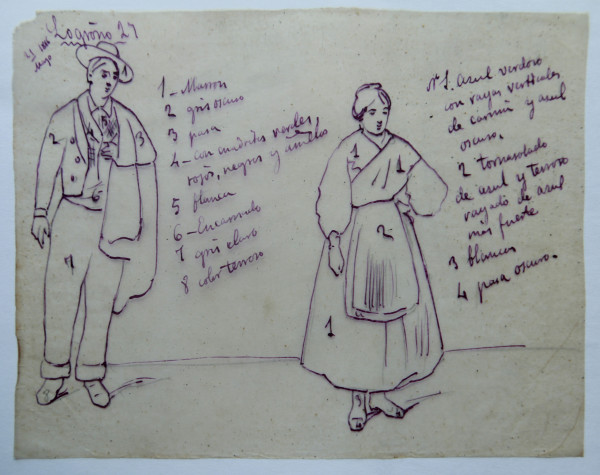 Logroño 27
1 - Marron
2 gris oscuro
3 pasa
4 - con cuadritos verdes,
rojos, negros y amarillos
5 blanca
6 - Encarnado
7 gris claro
8 color terroso
Nº 1. Azul verdoso
con rayas verticales
de carmin y azul
oscuro.
2 tornasolado
de azul y terroso
rayado de azul
mas fuerte
3 blancas
4 pasa oscuro.
1
2
3
4
5
6
7
1
1
2
1
3